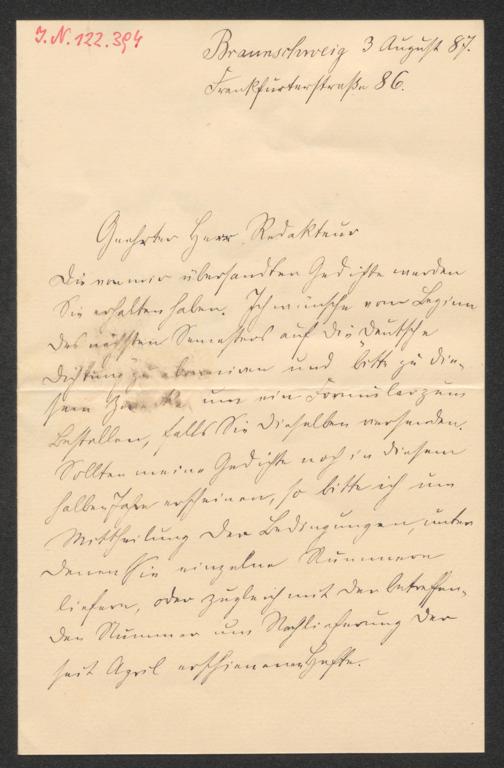 J. N. 122.394
Braunschweig 3 August 87.
Frankfurterstraße 86.
Geehrter Herr Redakteur
Die von mir übersandten Gedichte werden
Sie erhalten haben. Ich wünsche vom Beginn
des nächsten Semesters auf die „Deutsche
Dichtung" zu abonniren und bitte zu die-
sem Zwecke um ein Formular zum
Bestellen, falls Sie dieselben versenden.
Sollten meine Gedichte noch in diesem
halben Jahr erscheinen, so bitte ich um
Mittheilung der Bedingungen, unter
denen Sie einzelne Nummern
liefern, oder zugleich mit der betreffen-
den Nummer um Nachlieferung der
seit April erschienenen Hefte.